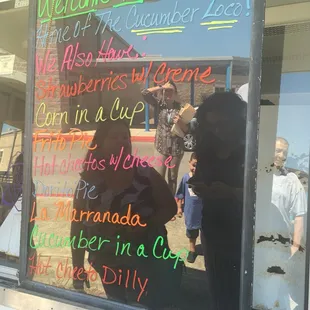 Welcome
Home Of The Cucumber Loco!
We Also Have:
Strawberries w/ Creme
Corn in a Cup
Frito Pie
Hot cheetos w/ cheese
Dorito Pie
La Marranada
Cucumber in a Cup
Hot Cheeto Dilly